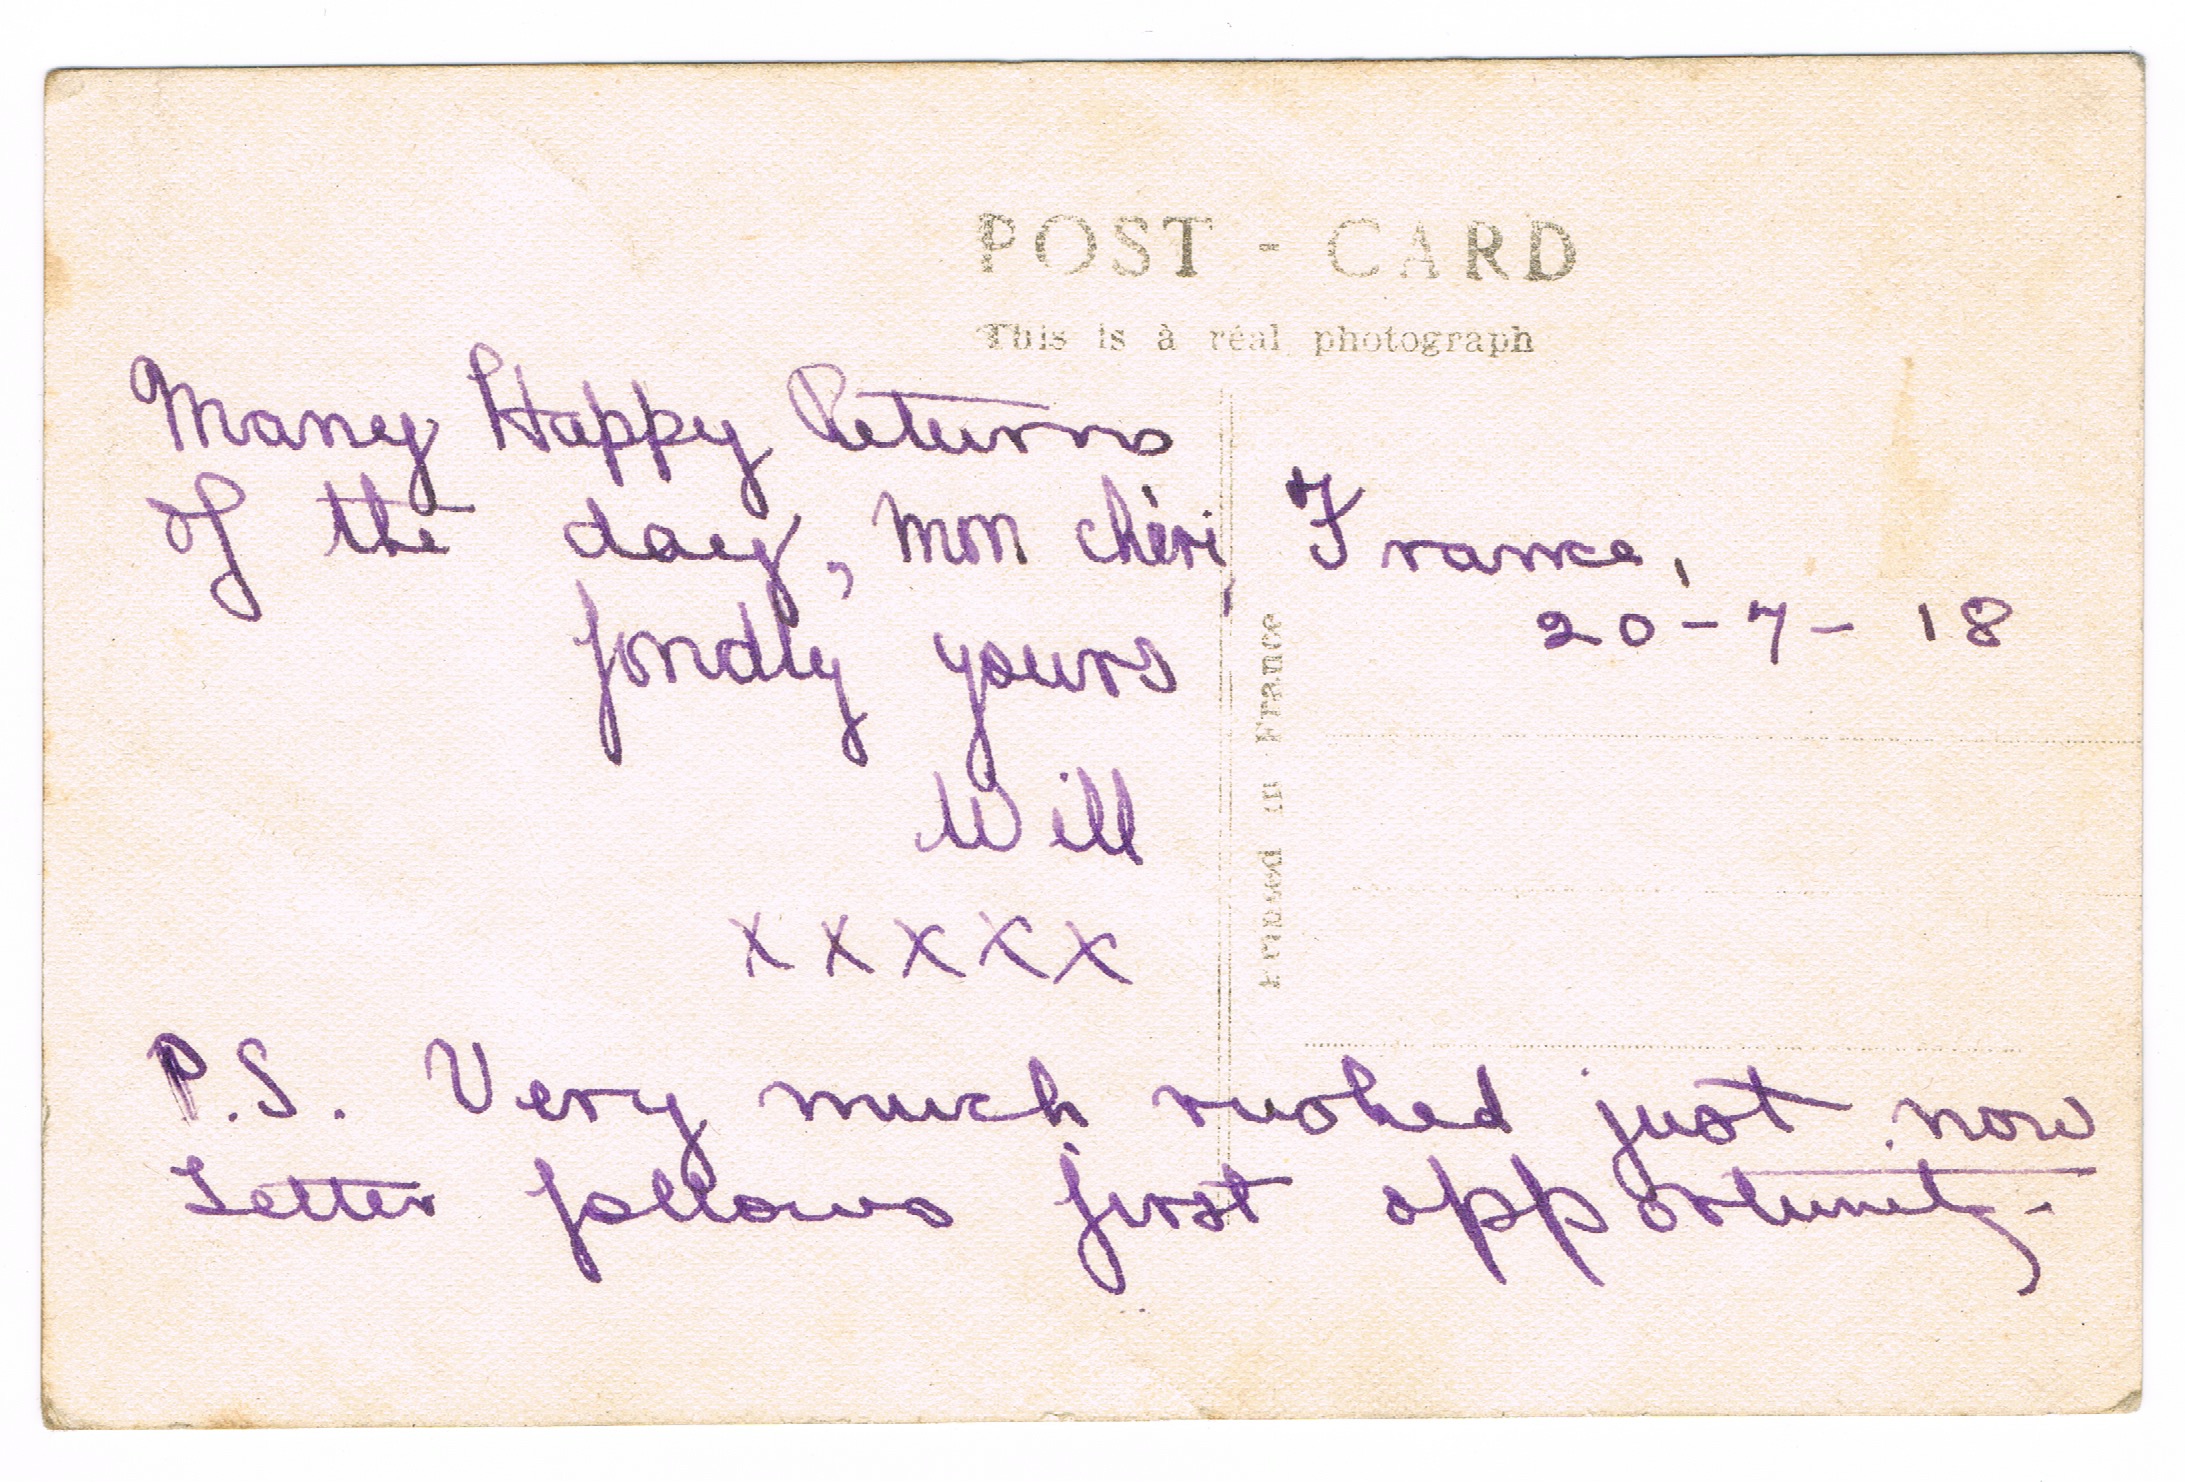 POST - CARD
This is à réal photograph
Many Happy Returns
of the day, mon chéri,
fondly yours
Will
x x x x x
France,
20-7-18
Printed in France
P.S. Very much rushed just now
Letter follows first opportunity-